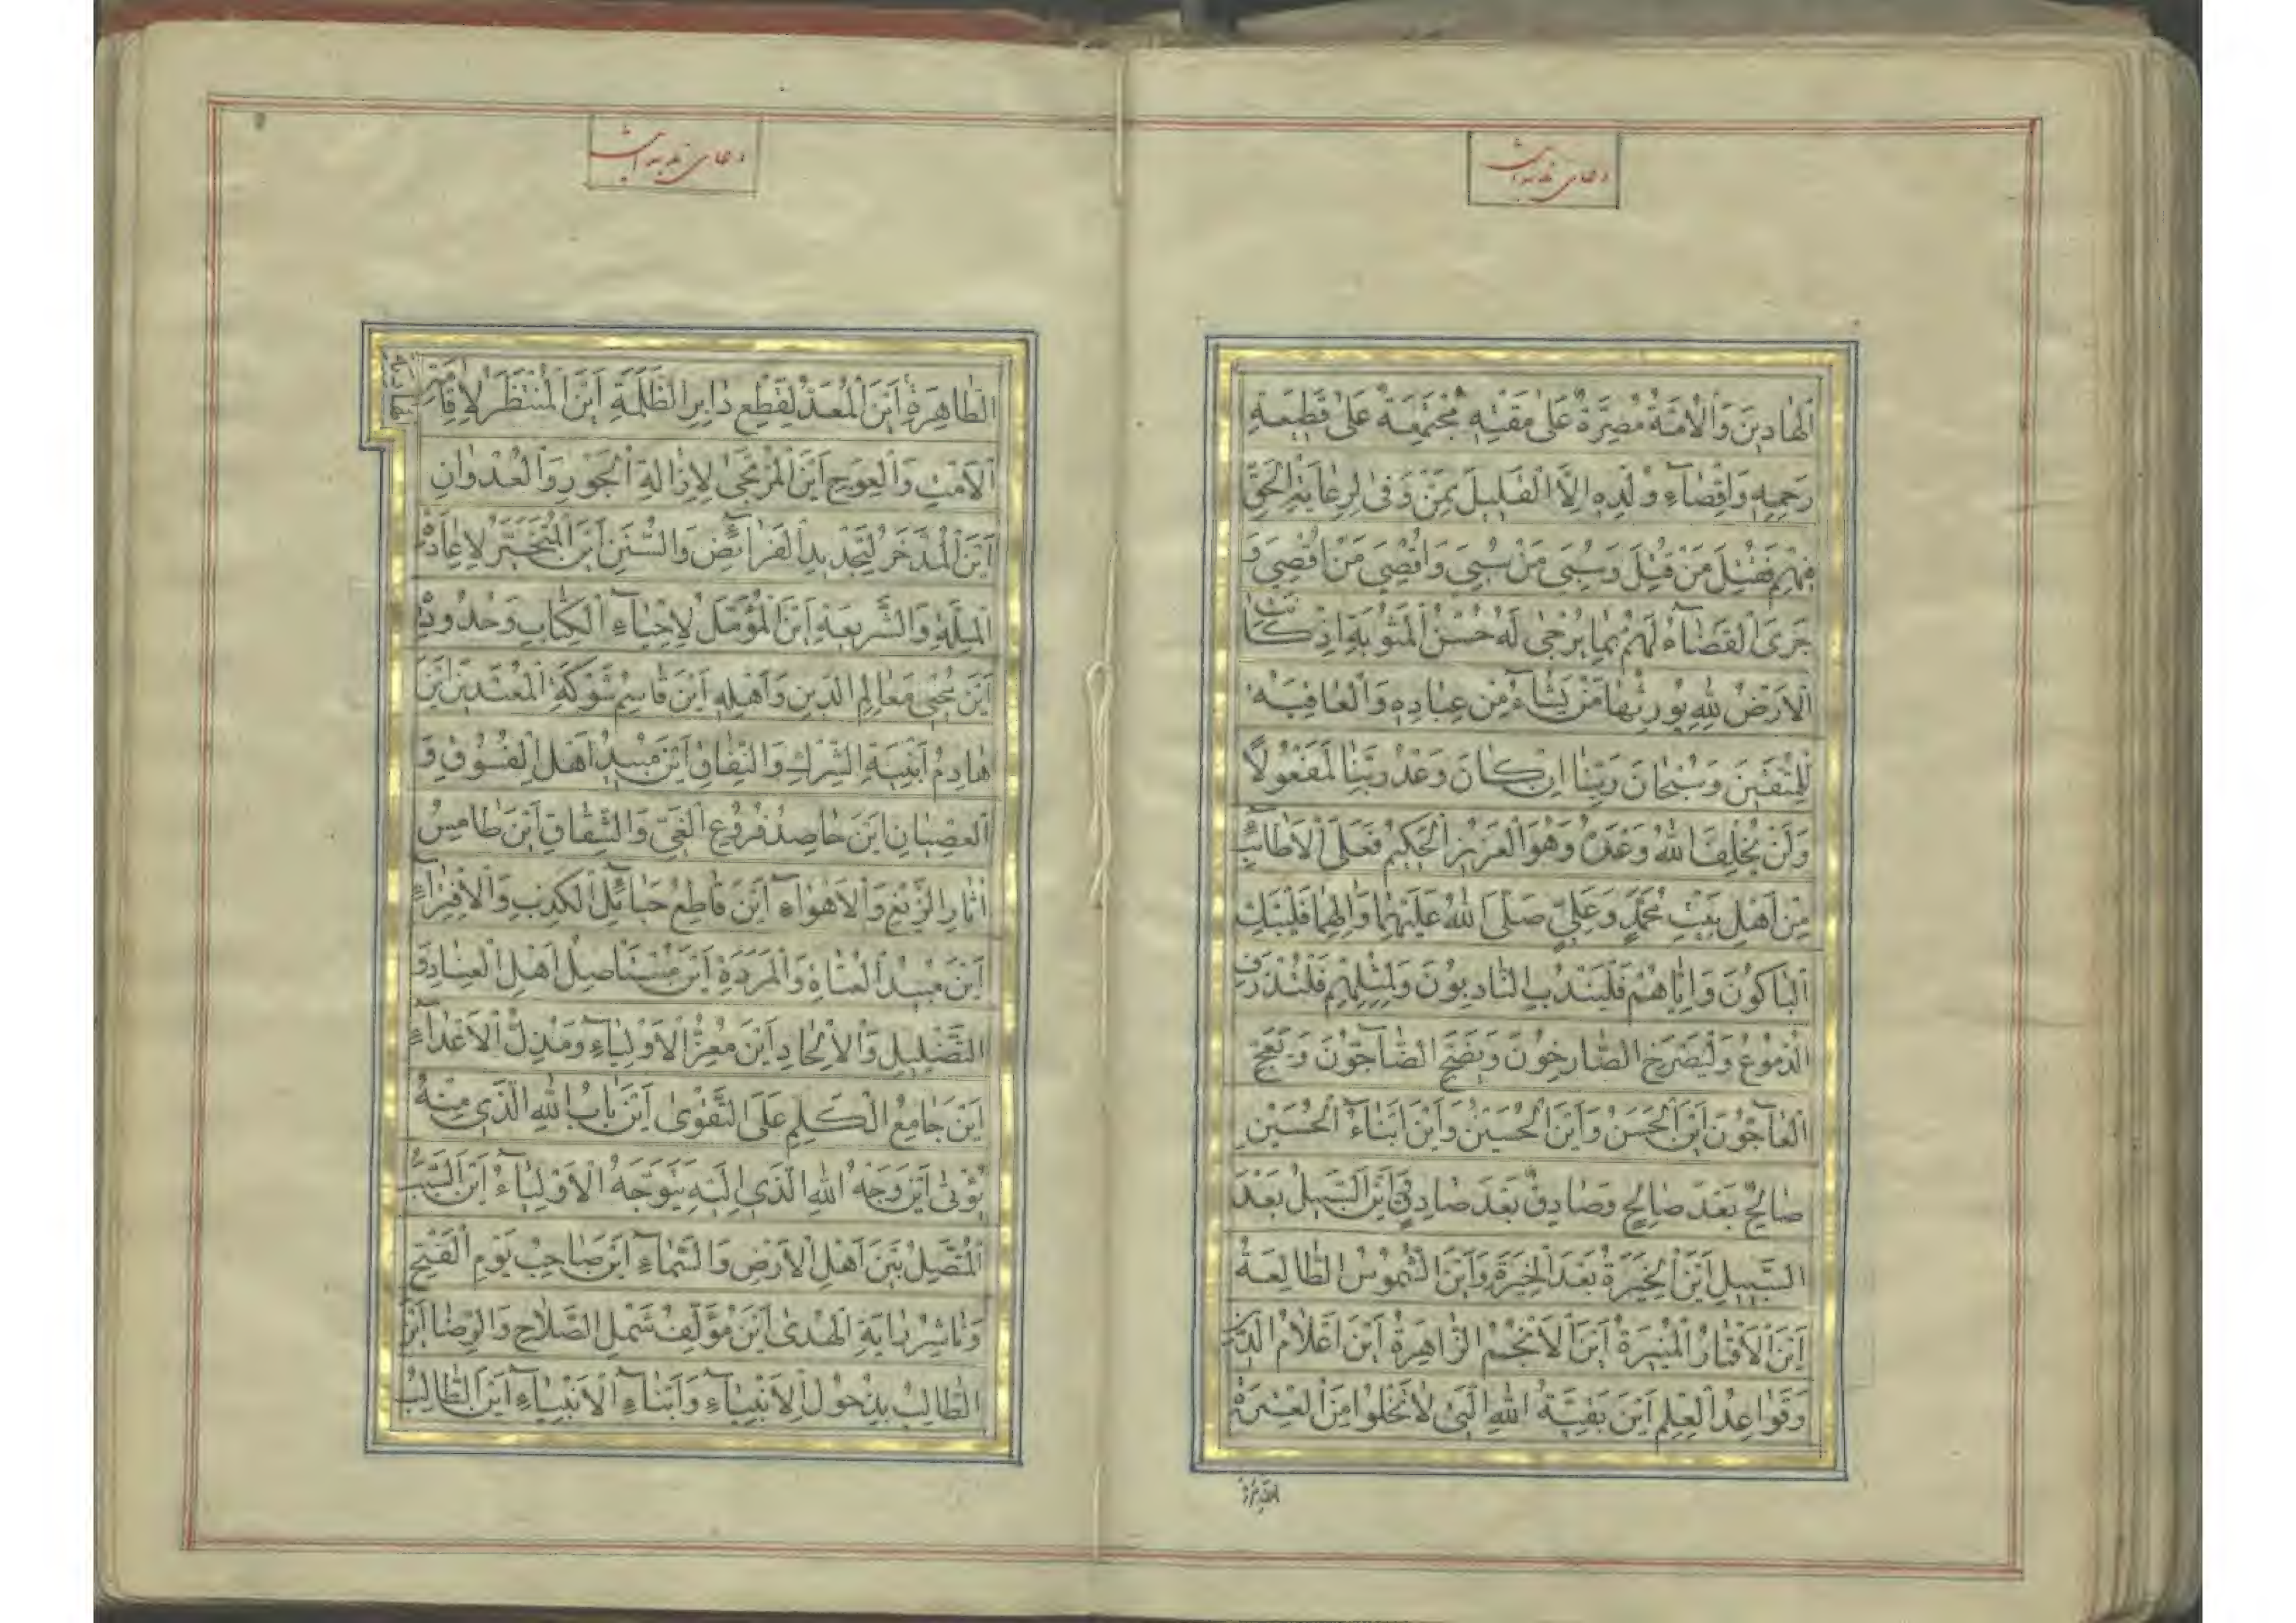 دعای ندبه است
اَلْهادِینَ وَالْاُمَّةُ مُصِرَّةٌ عَلیٰ مَقْتِهِ مُجْتَمِعَةٌ عَلیٰ قَطِیعَةِ
رَحِمِهِ وَاِقْصآءِ وُلْدِهِ اِلَّا الْقَلِیلَ مِمَّنْ وَفیٰ لِرِعایَةِ الْحَقِّ
فِیهِمْ فَقُتِلَ مَنْ قُتِلَ وَسُبِیَ مَنْ سُبِیَ وَاُقْصِیَ مَنْ اُقْصِیَ وَ
جَرَی الْقَضآءُ لَهُمْ بِما یُرْجیٰ لَهُ حُسْنُ الْمَثُوبَةِ اِذْ کانَتْ
الْاَرْضُ لِلّٰهِ یُورِثُها مَنْ یَشآءُ مِنْ عِبادِهِ وَالْعاقِبَةُ
لِلْمُتَّقِینَ وَسُبْحانَ رَبِّنا اِنْ کانَ وَعْدُ رَبِّنا لَمَفْعُولًا
وَلَنْ یُخْلِفَ اللّٰهُ وَعْدَهُ وَهُوَ الْعَزِیزُ الْحَکِیمُ فَعَلَی الْاَطآئِبِ
مِنْ اَهْلِ بَیْتِ مُحَمَّدٍ وَعَلِیٍّ صَلَّی اللّٰهُ عَلَیْهِما وَاٰلِهِما فَلْیَبْكِ
الْباکُونَ وَاِیّاهُمْ فَلْیَنْدُبِ النّادِبُونَ وَلِمِثْلِهِمْ فَلْتُذْرَفِ
الدُّمُوعُ وَلْیَصْرَخِ الصّارِخُونَ وَیَضِجَّ الضّآجُّونَ وَیَعِجَّ
الْعآجُّونَ اَیْنَ الْحَسَنُ وَاَیْنَ الْحُسَیْنُ وَاَیْنَ اَبْنآءُ الْحُسَیْنِ
صالِحٌ بَعْدَ صالِحٍ وَصادِقٌ بَعْدَ صادِقٍ اَیْنَ السَّبِیلُ بَعْدَ
السَّبِیلِ اَیْنَ الْخِیَرَةُ بَعْدَ الْخِیَرَةِ وَاَیْنَ الشُّمُوسُ الطّالِعَةُ
اَیْنَ الْاَقْمارُ الْمُنِیرَةُ اَیْنَ الْاَنْجُمُ الزّاهِرَةُ اَیْنَ اَعْلامُ الدِّینِ
وَقَواعِدُ الْعِلْمِ اَیْنَ بَقِیَّةُ اللّٰهِ الَّتِی لا تَخْلُوا مِنَ الْعِتْرَةِ
دعای ندبه است
الطّاهِرَةِ اَیْنَ الْمُعَدُّ لِقَطْعِ دابِرِ الظَّلَمَةِ اَیْنَ الْمُنْتَظَرُ لِاِقامَةِ
الْاَمْتِ وَالْعِوَجِ اَیْنَ الْمُرْتَجیٰ لِاِزالَةِ الْجَوْرِ وَالْعُدْوانِ
اَیْنَ الْمُدَّخَرُ لِتَجْدِیدِ الْفَرآئِضِ وَالسُّنَنِ اَیْنَ الْمُتَخَیَّرُ لِاِعادَةِ
الْمِلَّةِ وَالشَّرِیعَةِ اَیْنَ الْمُؤَمَّلُ لِاِحْیآءِ الْکِتابِ وَحُدُودِهِ
اَیْنَ مُحْیِی مَعالِمِ الدِّینِ وَاَهْلِهِ اَیْنَ قاسِمُ شَوْکَةِ الْمُعْتَدِینَ اَیْنَ
هادِمُ اَبْنِیَةِ الشِّرْكِ وَالنِّفاقِ اَیْنَ مُبِیدُ اَهْلِ الْفُسُوقِ وَ
الْعِصْیانِ اَیْنَ حاصِدُ فُرُوعِ الْغَیِّ وَالشِّقاقِ اَیْنَ طامِسُ
اٰثارِ الزَّیْغِ وَالْاَهْوآءِ اَیْنَ قاطِعُ حَبآئِلِ الْکَذِبِ وَالْاِفْتِرآءِ
اَیْنَ مُبِیدُ الْعُتاةِ وَالْمَرَدَةِ اَیْنَ مُسْتَاْصِلُ اَهْلِ الْعِنادِ وَ
التَّضْلِیلِ وَالْاِلْحادِ اَیْنَ مُعِزُّ الْاَوْلِیآءِ وَمُذِلُّ الْاَعْدآءِ
اَیْنَ جامِعُ الْکَلِمِ عَلَی التَّقْویٰ اَیْنَ بابُ اللّٰهِ الَّذِی مِنْهُ
یُؤْتیٰ اَیْنَ وَجْهُ اللّٰهِ الَّذِی اِلَیْهِ یَتَوَجَّهُ الْاَوْلِیآءُ اَیْنَ السَّبَبُ
الْمُتَّصِلُ بَیْنَ اَهْلِ الْاَرْضِ وَالسَّمآءِ اَیْنَ صاحِبُ یَوْمِ الْفَتْحِ
وَناشِرُ رایَةِ الْهُدیٰ اَیْنَ مُؤَلِّفُ شَمْلِ الصَّلاحِ وَالرِّضا اَیْنَ
الطّالِبُ بِذُحُولِ الْاَنْبِیآءِ وَاَبْنآءِ الْاَنْبِیآءِ اَیْنَ الطّالِبُ